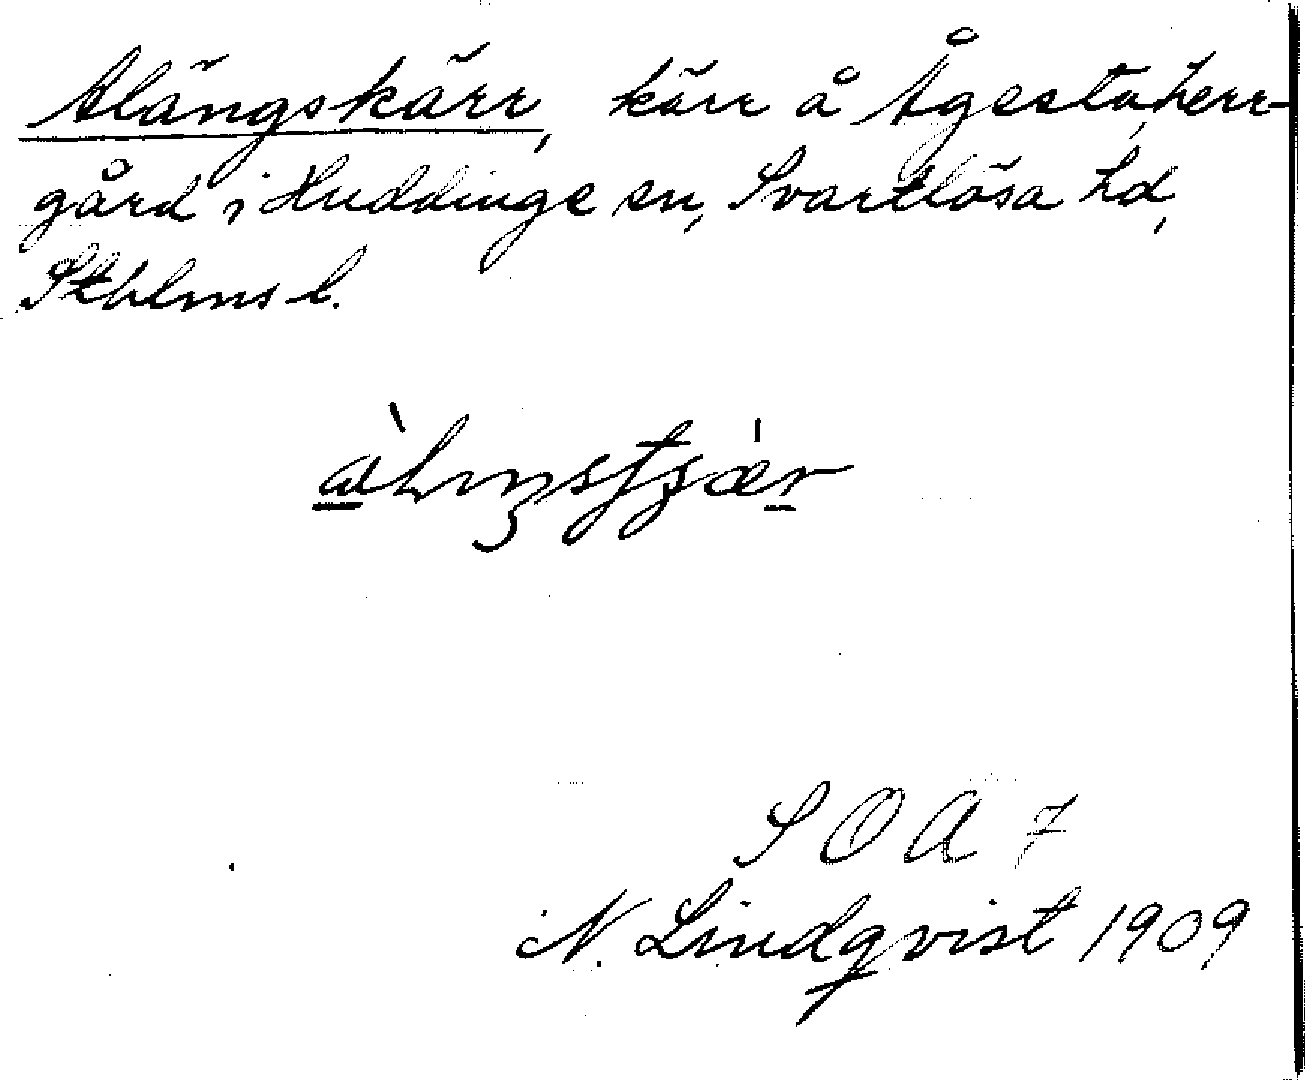 Alängskärr, kärr å Ågesta, herr-
gård i Huddinge sn, Svartlösa hd,
Stblms l.
S O A 7
N. Lindqvist 1909